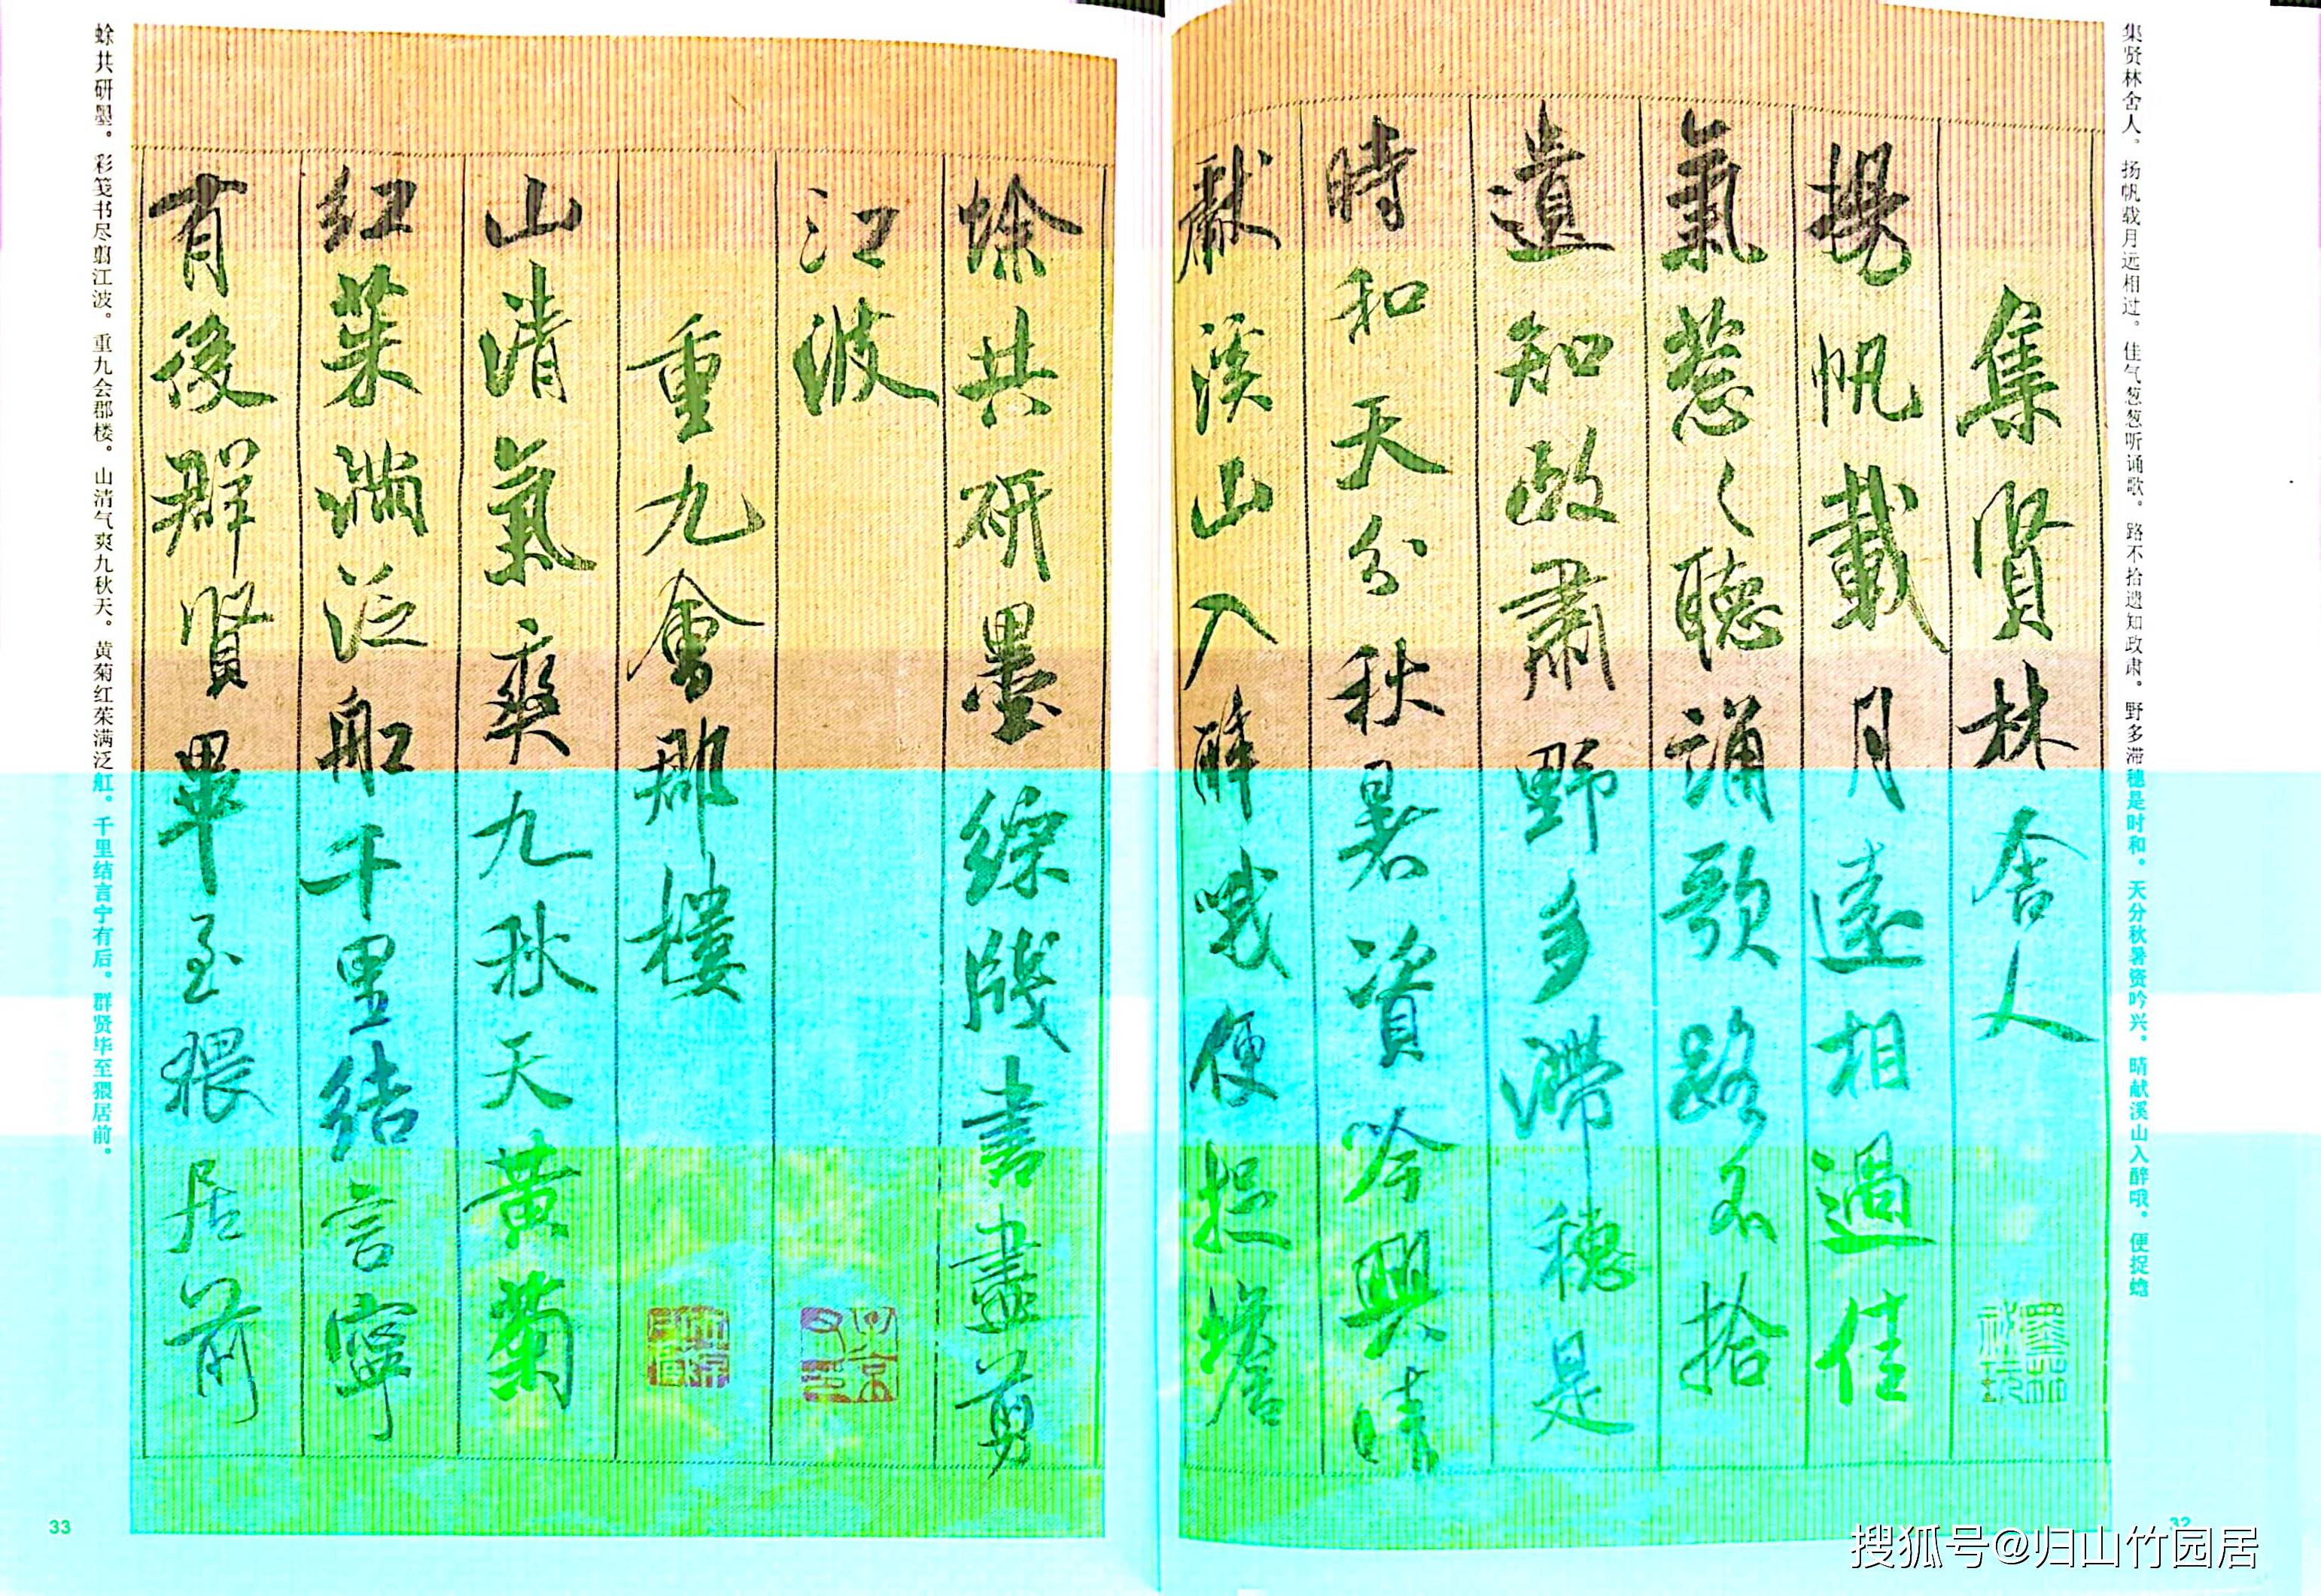 集贤林舍人。扬帆载月远相过。佳气葱葱听诵歌。路不拾遗知政肃。野多滞穗是时和。天分秋暑资吟兴。晴献溪山入醉哦。便捉蟾
集賢林舍人
揚帆載月遠相過佳
氣蔥〻聽誦歌路不拾
遺知政肅野多滯穗是
時和天分秋暑資吟興晴
獻溪山入醉哦便捉蟾
32
蜍共研墨綵牋書盡剪
江波
重九會郡樓
山清氣爽九秋天黃菊
紅茱滿泛船千里結言寧
有後群賢畢至猥居前
蜍共研墨。彩笺书尽剪江波。重九会郡楼。山清气爽九秋天。黄菊红茱满泛舡。千里结言宁有后。群贤毕至猥居前。
33
搜狐号@归山竹园居